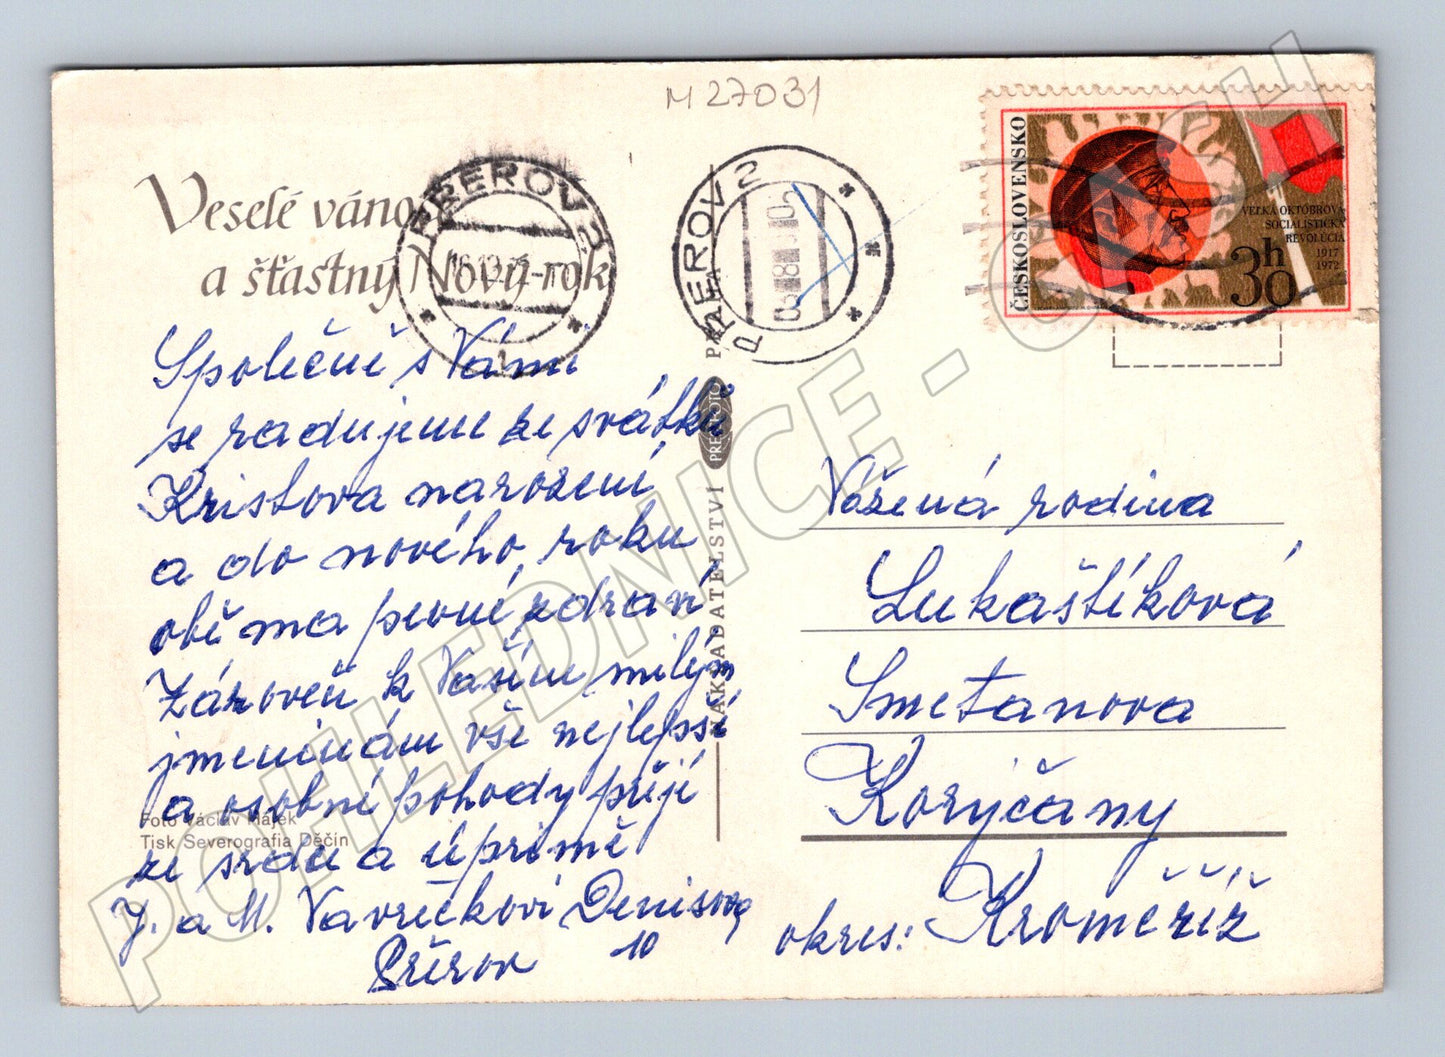 M 27031
Veselé váno
a šťastný Nový rok
PŘEROV 2
1
PŘEROV 2
ČESKOSLOVENSKO
VEĽKÁ OKTÓBROVÁ
SOCIALISTICKÁ
REVOLÚCIA
1917
1972
30h
Společně s Vámi
se radujeme ze svátků
Kristova narození
a do nového roku
obě ma pevné zdraví
Zároveň k Vašim milým
jmeninám vše nejlepší
a osobní pohody přejí
ze srdce a úpřimě
J. a M. Vavřečkovi Denisova
Přerov 10
Foto Václav Hájek
Tisk Severografia Děčín
NAKLADATELSTVÍ PRESSFOTO PRAHA
Vážená rodina
Lukaštíková
Smetanova
Koryčany
okres: Kroměříž
POHLEDNICE - U ASH